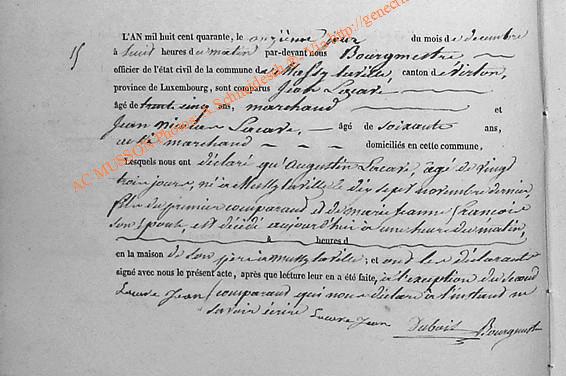 15
L'AN mil huit cent quarante, le onzième jour du mois de decembre
à huit heures du matin par-devant nous Bourgmestre
officier de l'état civil de la commune de Mussy-la-ville, canton de Virton,
province de Luxembourg, sont comparus Jean Lacave
âgé de trente cinq ans, marchand et
Jean Nicolas Lacave, âgé de soixante ans,
marchand domiciliés en cette commune,
Lesquels nous ont déclaré qu'Augustin Lacave, âgé de vingt
trois jours, né à Mussy-la-ville le dix sept novembre dernier
fils du premier comparant et de marie jeanne françois
son épouse, est décédé aujourd'hui à une heure du matin,
à heures d
en la maison de son père à mussy la ville; et ont les déclarants
signé avec nous le présent acte, après que lecture leur en a été faite, à l'exception du second
comparant qui nous a déclaré à l'instant ne
savoir écrire Lacave Jean Dubois Bourgmest
AC MUSSON Photos A Schaidesch AC Via http://genechr